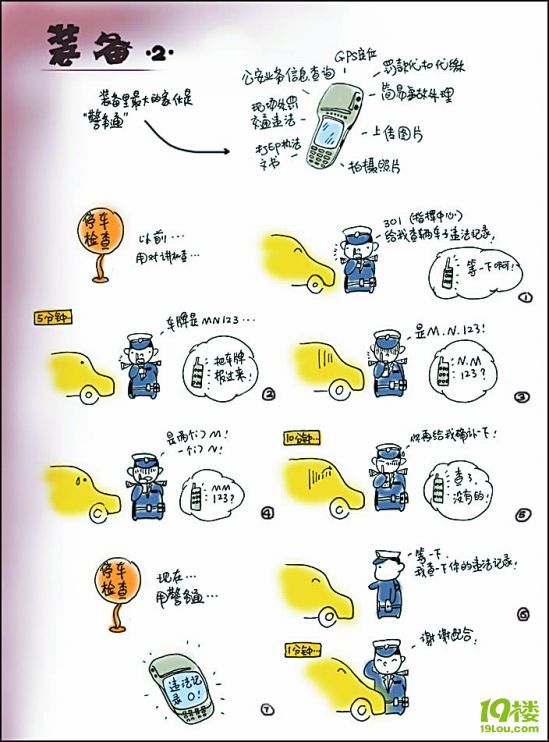 装备·2·
装备里最大的家伙是
“警务通”
GPS定位
公安业务信息查询
罚款代扣代缴
现场处罚
交通违法
简易事故处理
打印执法
文书
上传图片
拍摄照片
停车
检查
以前…
用对讲机查…
301(指挥中心)
给我查辆车子违法记录!
等一下啊!
①
5分钟…
车牌是MN123…
把车牌
报过来!
②
是M.N.123!
N.M
123?
③
是两个门M!
一个门N!
MM
123?
④
10分钟…
你再给我确认一下!
查了,
没有的!
⑤
停车
检查
现在…
用警务通…
等一下,
我查一下你的违法记录!
⑥
违法记
录0!
⑦
1分钟…
谢谢配合!
19楼
19Lou.com